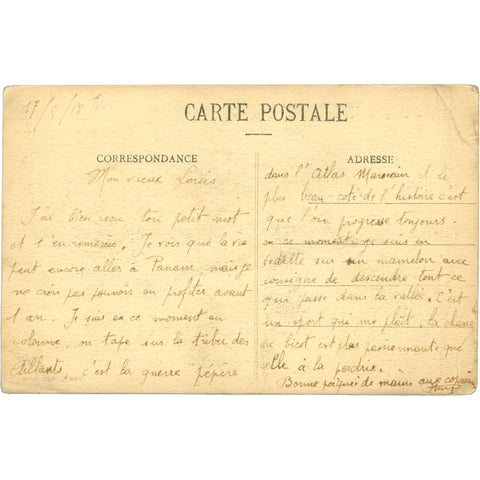 17/5/18
CARTE POSTALE
CORRESPONDANCE
Mon vieux Louis
J'ai bien reçu ton petit mot
et t'en remercie. Je vois que la vie
peut encore aller à Panam, mais je
ne crois pas pouvoir en profiter avant
1 an. Je suis en ce moment en
colonne, on tape sur la tribu des
c'est la guerre pépère
ADRESSE
dans l'Atlas Marocain et le
plus beau coté de l'histoire c'est
que l'on progresse toujours.
en ce moment je suis en
vedette sur un mamelon avec
consigne de descendre tout ce
qui passe dans la vallée. C'est
un sport qui me plait, la chasse
au bicot est plus passionnante que
celle à la perdrix.
Bonne poignée de mains aux copains